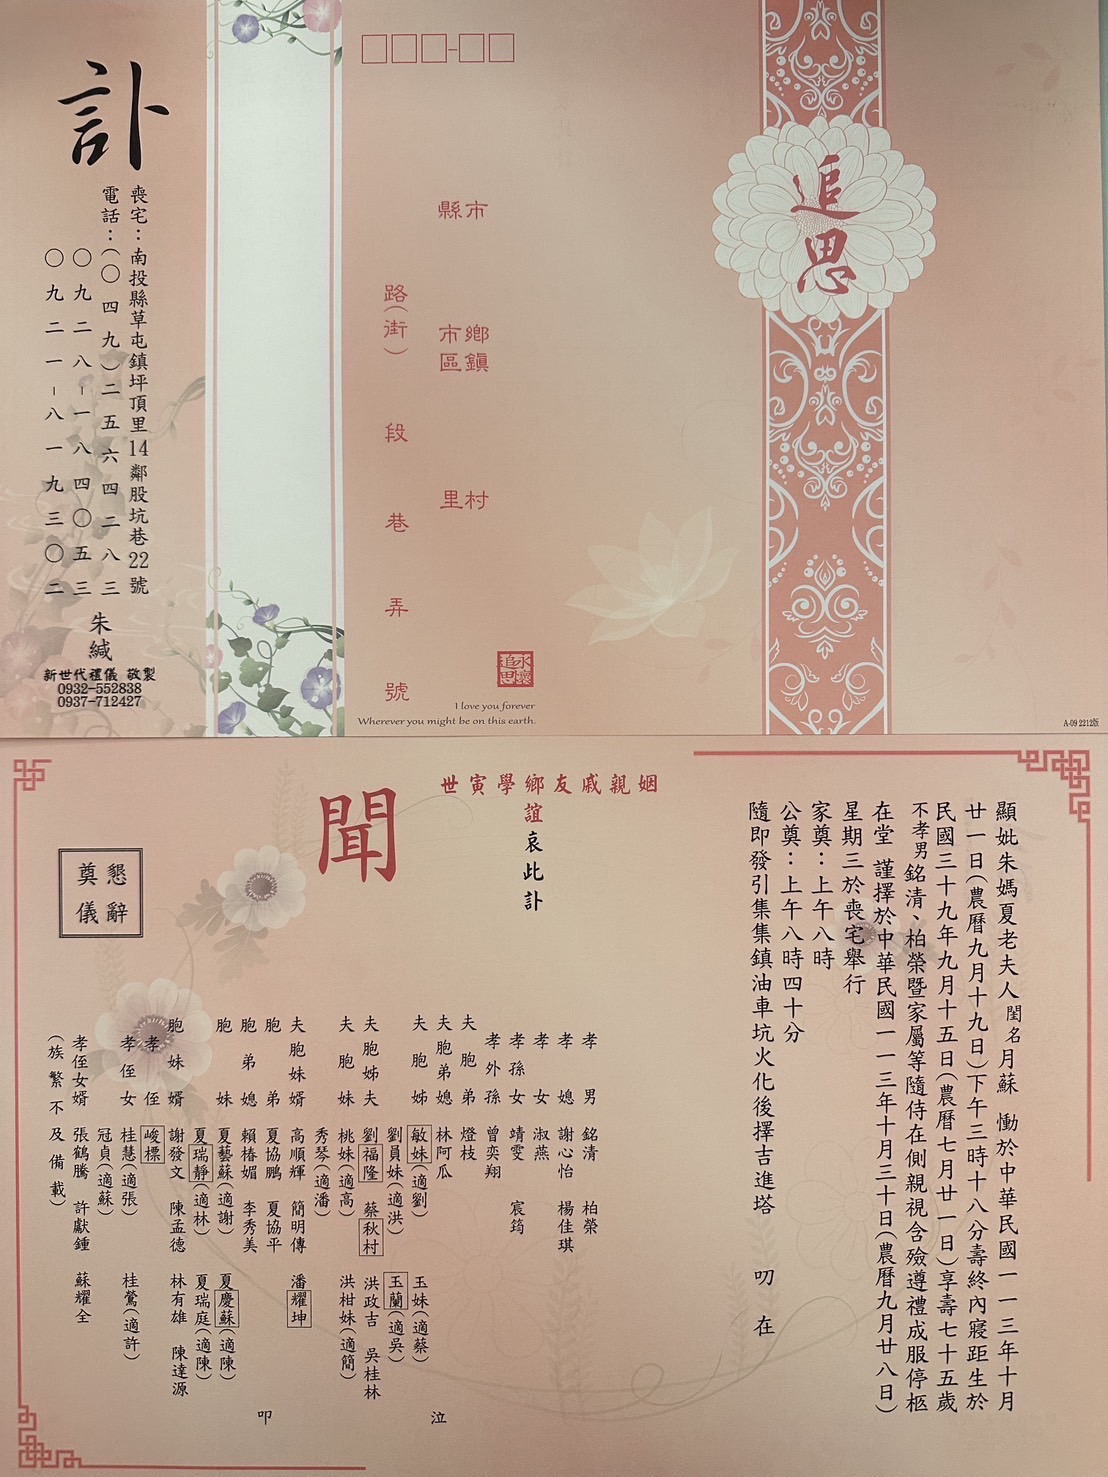 追思
A-09 2212版
縣市
鄉鎮
市區
村
里
路(街)
段
巷
弄
號
永懷追思
I love you forever
Wherever you might be on this earth.
訃
喪宅：南投縣草屯鎮坪頂里14鄰股坑巷22號
電話：(〇四九)二五六四二八三
〇九二八-一八四〇五三
〇九二一-八一九三〇二
朱緘
新世代禮儀 敬製
0932-552838
0937-712427
顯妣朱媽夏老夫人閨名月蘇 慟於中華民國一一三年十月
廿一日(農曆九月十九日)下午三時十八分壽終內寢距生於
民國三十九年九月十五日(農曆七月廿一日)享壽七十五歲
不孝男銘清、柏榮暨家屬等隨侍在側親視含殮遵禮成服停柩
在堂 謹擇於中華民國一一三年十月三十日(農曆九月廿八日)
星期三於喪宅舉行
家奠：上午八時
公奠：上午八時四十分
隨即發引集集鎮油車坑火化後擇吉進塔 叨 在
姻親戚友鄉學寅世
誼哀此訃
聞
懇辭奠儀
孝男 銘清 柏榮
孝媳 謝心怡 楊佳琪
孝女 淑燕
孝孫女 靖雯 宸筠
孝外孫 曾奕翔
夫胞弟 燈枝
夫胞弟媳 林阿瓜
夫胞姊 敏妹(適劉) 玉妹(適蔡)
劉員妹(適洪) 玉蘭(適吳)
夫胞姊夫 劉福隆 蔡秋村 洪政吉 吳桂林
夫胞妹 桃妹(適高) 洪柑妹(適簡)
秀琴(適潘)
夫胞妹婿 高順輝 簡明傳 潘耀坤
胞弟 夏協鵬 夏協平
胞弟媳 賴椿媚 李秀美
胞妹 夏藝蘇(適謝) 夏慶蘇(適陳)
夏瑞靜(適林) 夏瑞庭(適陳)
胞妹婿 謝發文 陳孟德 林有雄 陳達源
孝侄 峻標
孝侄女 桂慧(適張) 桂鶯(適許)
冠貞(適蘇)
孝侄女婿 張鶴騰 許獻鍾 蘇耀全
(族繁不及備載)
泣
叩